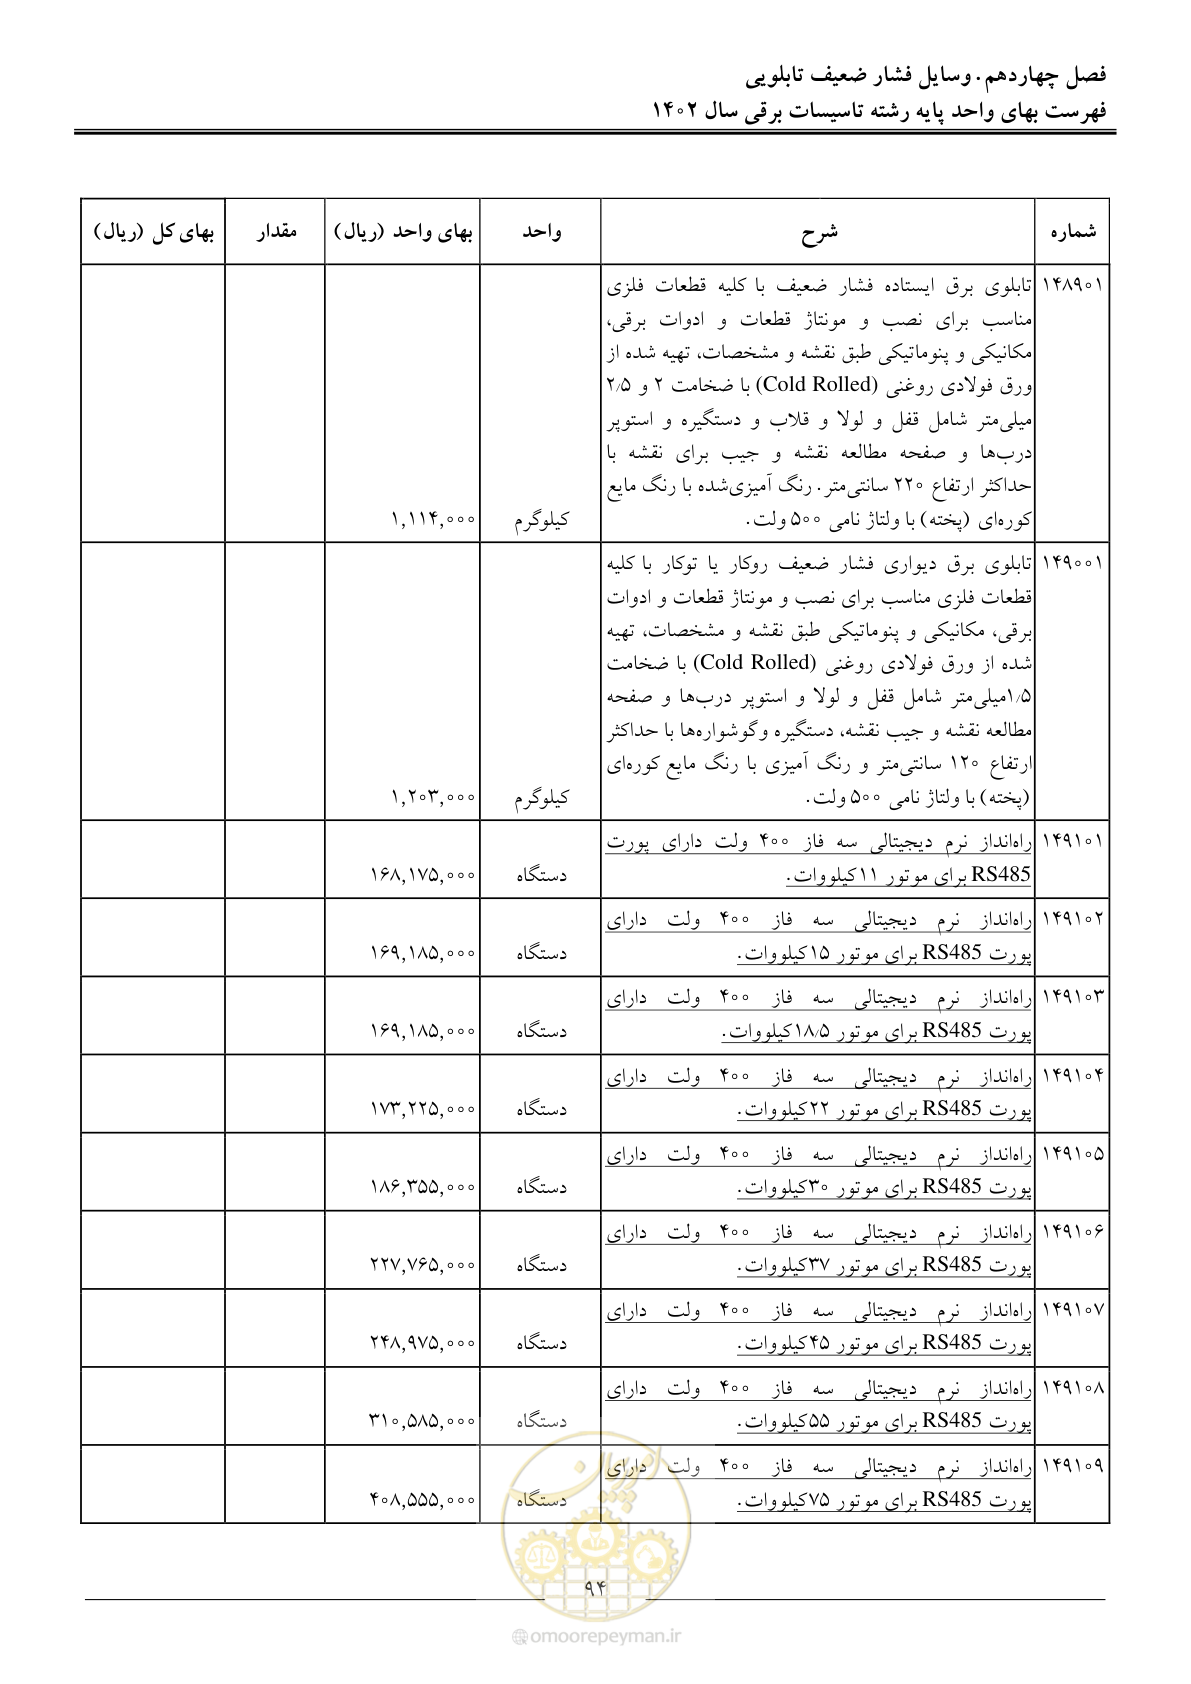 فصل چهاردهم. وسایل فشار ضعیف تابلویی
فهرست بهای واحد پایه رشته تاسیسات برقی سال ۱۴۰۲
شماره شرح واحد بهای واحد (ریال) مقدار بهای کل (ریال)
۱۴۸۹۰۱ تابلوی برق ایستاده فشار ضعیف با کلیه قطعات فلزی
مناسب برای نصب و مونتاژ قطعات و ادوات برقی،
مکانیکی و پنوماتیکی طبق نقشه و مشخصات، تهیه شده از
ورق فولادی روغنی (Cold Rolled) با ضخامت ۲ و ۲/۵
میلی‌متر شامل قفل و لولا و قلاب و دستگیره و استوپر
درب‌ها و صفحه مطالعه نقشه و جیب برای نقشه با
حداکثر ارتفاع ۲۲۰ سانتی‌متر. رنگ آمیزی‌شده با رنگ مایع
کوره‌ای (پخته) با ولتاژ نامی ۵۰۰ ولت. کیلوگرم ۱,۱۱۴,۰۰۰
۱۴۹۰۰۱ تابلوی برق دیواری فشار ضعیف روکار یا توکار با کلیه
قطعات فلزی مناسب برای نصب و مونتاژ قطعات و ادوات
برقی، مکانیکی و پنوماتیکی طبق نقشه و مشخصات، تهیه
شده از ورق فولادی روغنی (Cold Rolled) با ضخامت
۱/۵میلی‌متر شامل قفل و لولا و استوپر درب‌ها و صفحه
مطالعه نقشه و جیب نقشه، دستگیره وگوشواره‌ها با حداکثر
ارتفاع ۱۲۰ سانتی‌متر و رنگ آمیزی با رنگ مایع کوره‌ای
(پخته) با ولتاژ نامی ۵۰۰ ولت. کیلوگرم ۱,۲۰۳,۰۰۰
۱۴۹۱۰۱ راه‌انداز نرم دیجیتالی سه فاز ۴۰۰ ولت دارای پورت
RS485 برای موتور ۱۱کیلووات. دستگاه ۱۶۸,۱۷۵,۰۰۰
۱۴۹۱۰۲ راه‌انداز نرم دیجیتالی سه فاز ۴۰۰ ولت دارای
پورت RS485 برای موتور ۱۵کیلووات. دستگاه ۱۶۹,۱۸۵,۰۰۰
۱۴۹۱۰۳ راه‌انداز نرم دیجیتالی سه فاز ۴۰۰ ولت دارای
پورت RS485 برای موتور ۱۸/۵کیلووات. دستگاه ۱۶۹,۱۸۵,۰۰۰
۱۴۹۱۰۴ راه‌انداز نرم دیجیتالی سه فاز ۴۰۰ ولت دارای
پورت RS485 برای موتور ۲۲کیلووات. دستگاه ۱۷۳,۲۲۵,۰۰۰
۱۴۹۱۰۵ راه‌انداز نرم دیجیتالی سه فاز ۴۰۰ ولت دارای
پورت RS485 برای موتور ۳۰کیلووات. دستگاه ۱۸۶,۳۵۵,۰۰۰
۱۴۹۱۰۶ راه‌انداز نرم دیجیتالی سه فاز ۴۰۰ ولت دارای
پورت RS485 برای موتور ۳۷کیلووات. دستگاه ۲۲۷,۷۶۵,۰۰۰
۱۴۹۱۰۷ راه‌انداز نرم دیجیتالی سه فاز ۴۰۰ ولت دارای
پورت RS485 برای موتور ۴۵کیلووات. دستگاه ۲۴۸,۹۷۵,۰۰۰
۱۴۹۱۰۸ راه‌انداز نرم دیجیتالی سه فاز ۴۰۰ ولت دارای
پورت RS485 برای موتور ۵۵کیلووات. دستگاه ۳۱۰,۵۸۵,۰۰۰
۱۴۹۱۰۹ راه‌انداز نرم دیجیتالی سه فاز ۴۰۰ ولت دارای
پورت RS485 برای موتور ۷۵کیلووات. دستگاه ۴۰۸,۵۵۵,۰۰۰
امور پیمان
۹۴
omoorepeyman.ir